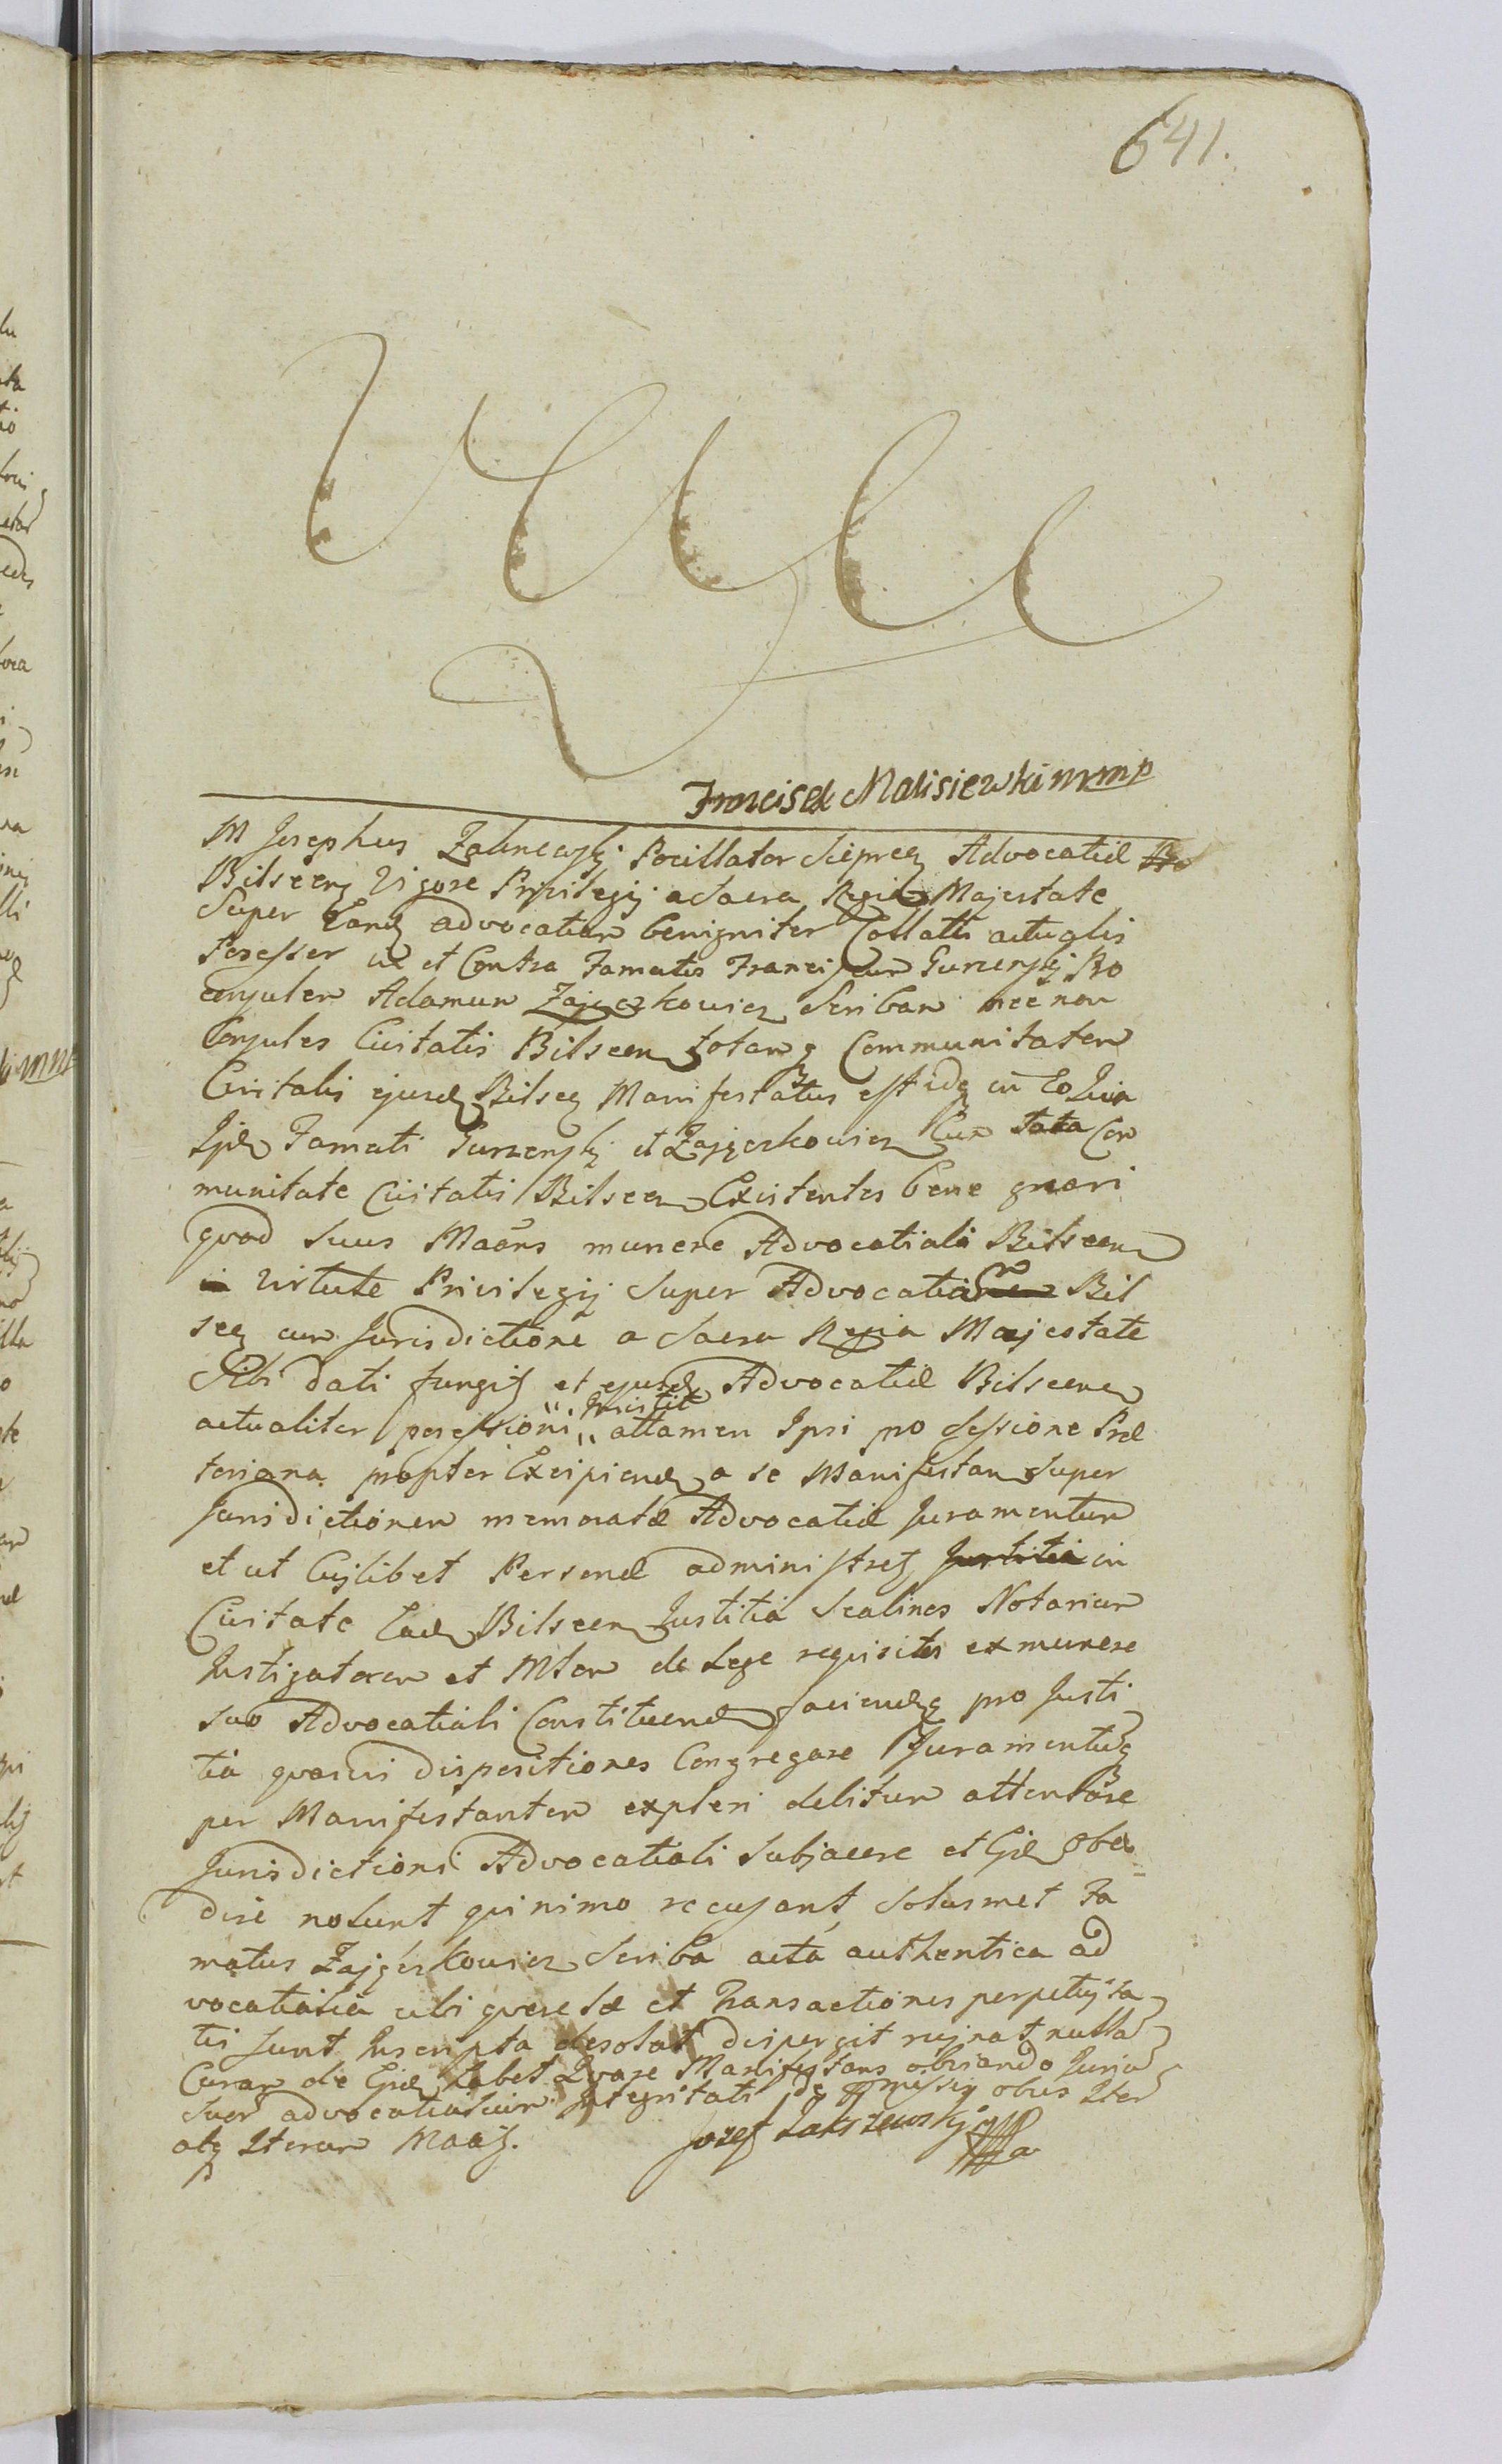 641.
Franciszek Malisiewski mmp
M Josephus Zakrzewskij Pocillator Advocatiæ
Bilscen Vigore Privilegij a Sacra Regia Majestate
Super Eand advocatiam benigniter Collati actualis
Posessor in et Contra Famatos Franciscum Pro
consulem Adamum Zajączkowicz Scribam nec non
Consules Civitatis Bilscen totamq Communitatem
Civitatis ejusd Bilscen Manifestatus est idq in Eo Quia
Ijd Famati et Zajączkowicz Cum tota Com
munitate Civitatis Bilscen Existentes bene gnari
quod suus Maans munere Advocatiali Bilscen
virtute Privilegij super Advocatiam Bil
scen cum Jurisdictione a Sacra Regia Majestate
Sibi dati et ejusd Advocatiæ Bilscen
actualiter possessioni insistit attamen Ipsi pro Sessione Præ
toriana propter Excipiend a se Manifestan super
Jurisdictionem memoratæ Advocatiæ Juramentum
et ut Cuilibet Personæ administret Justitia in
Civitate Ead Bilscen Justitia Scabinos Notarium
Instigatorem et Mlem de Lege requisitos ex munere
suo Advocatiali Constituend faciendq pro Justi
tia quasvis dispositiones Congregare Juramentuq
per Manifestantem expleri debitum
Jurisdictioni Advocatiali Subjacere et Obe
dire nolunt quinimo recusant, Solusmet Fa
matus Zajączkowicz Scriba acta authentica ad
vocatialia ubi querelæ et Transactiones
tis sunt Inscripta desolat dispergit rujnat nulla
Curam de habet Quare Manifestans obviando Juriu
suor advocatialium Integritati de præmissis Iter
atq Iterum Maa.
Jozef Zakrzewskij